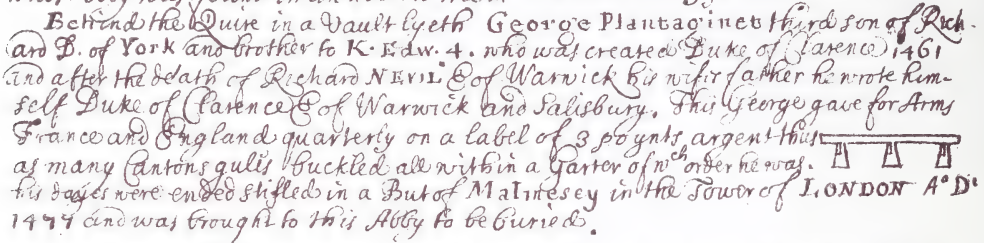 Behind the Quire in a Vault lyeth George Plantaginet third son of Rich-
ard D. of York and brother to K. Edw. 4. who was created Duke of Clarence 1461
and after the death of Richard NEVIL E of Warwick his wifes father he wrote him-
self Duke of Clarence E of Warwick and Salisbury. This George gave for Arms
France and England quarterly on a label of 3 poynts argent thus
as many Cantons gulis buckled all within a Garter of wch order he was.
his dayes were ended stifled in a But of Malmesey in the Tower of LONDON Ao Di
1477 and was brought to this Abby to be buried.